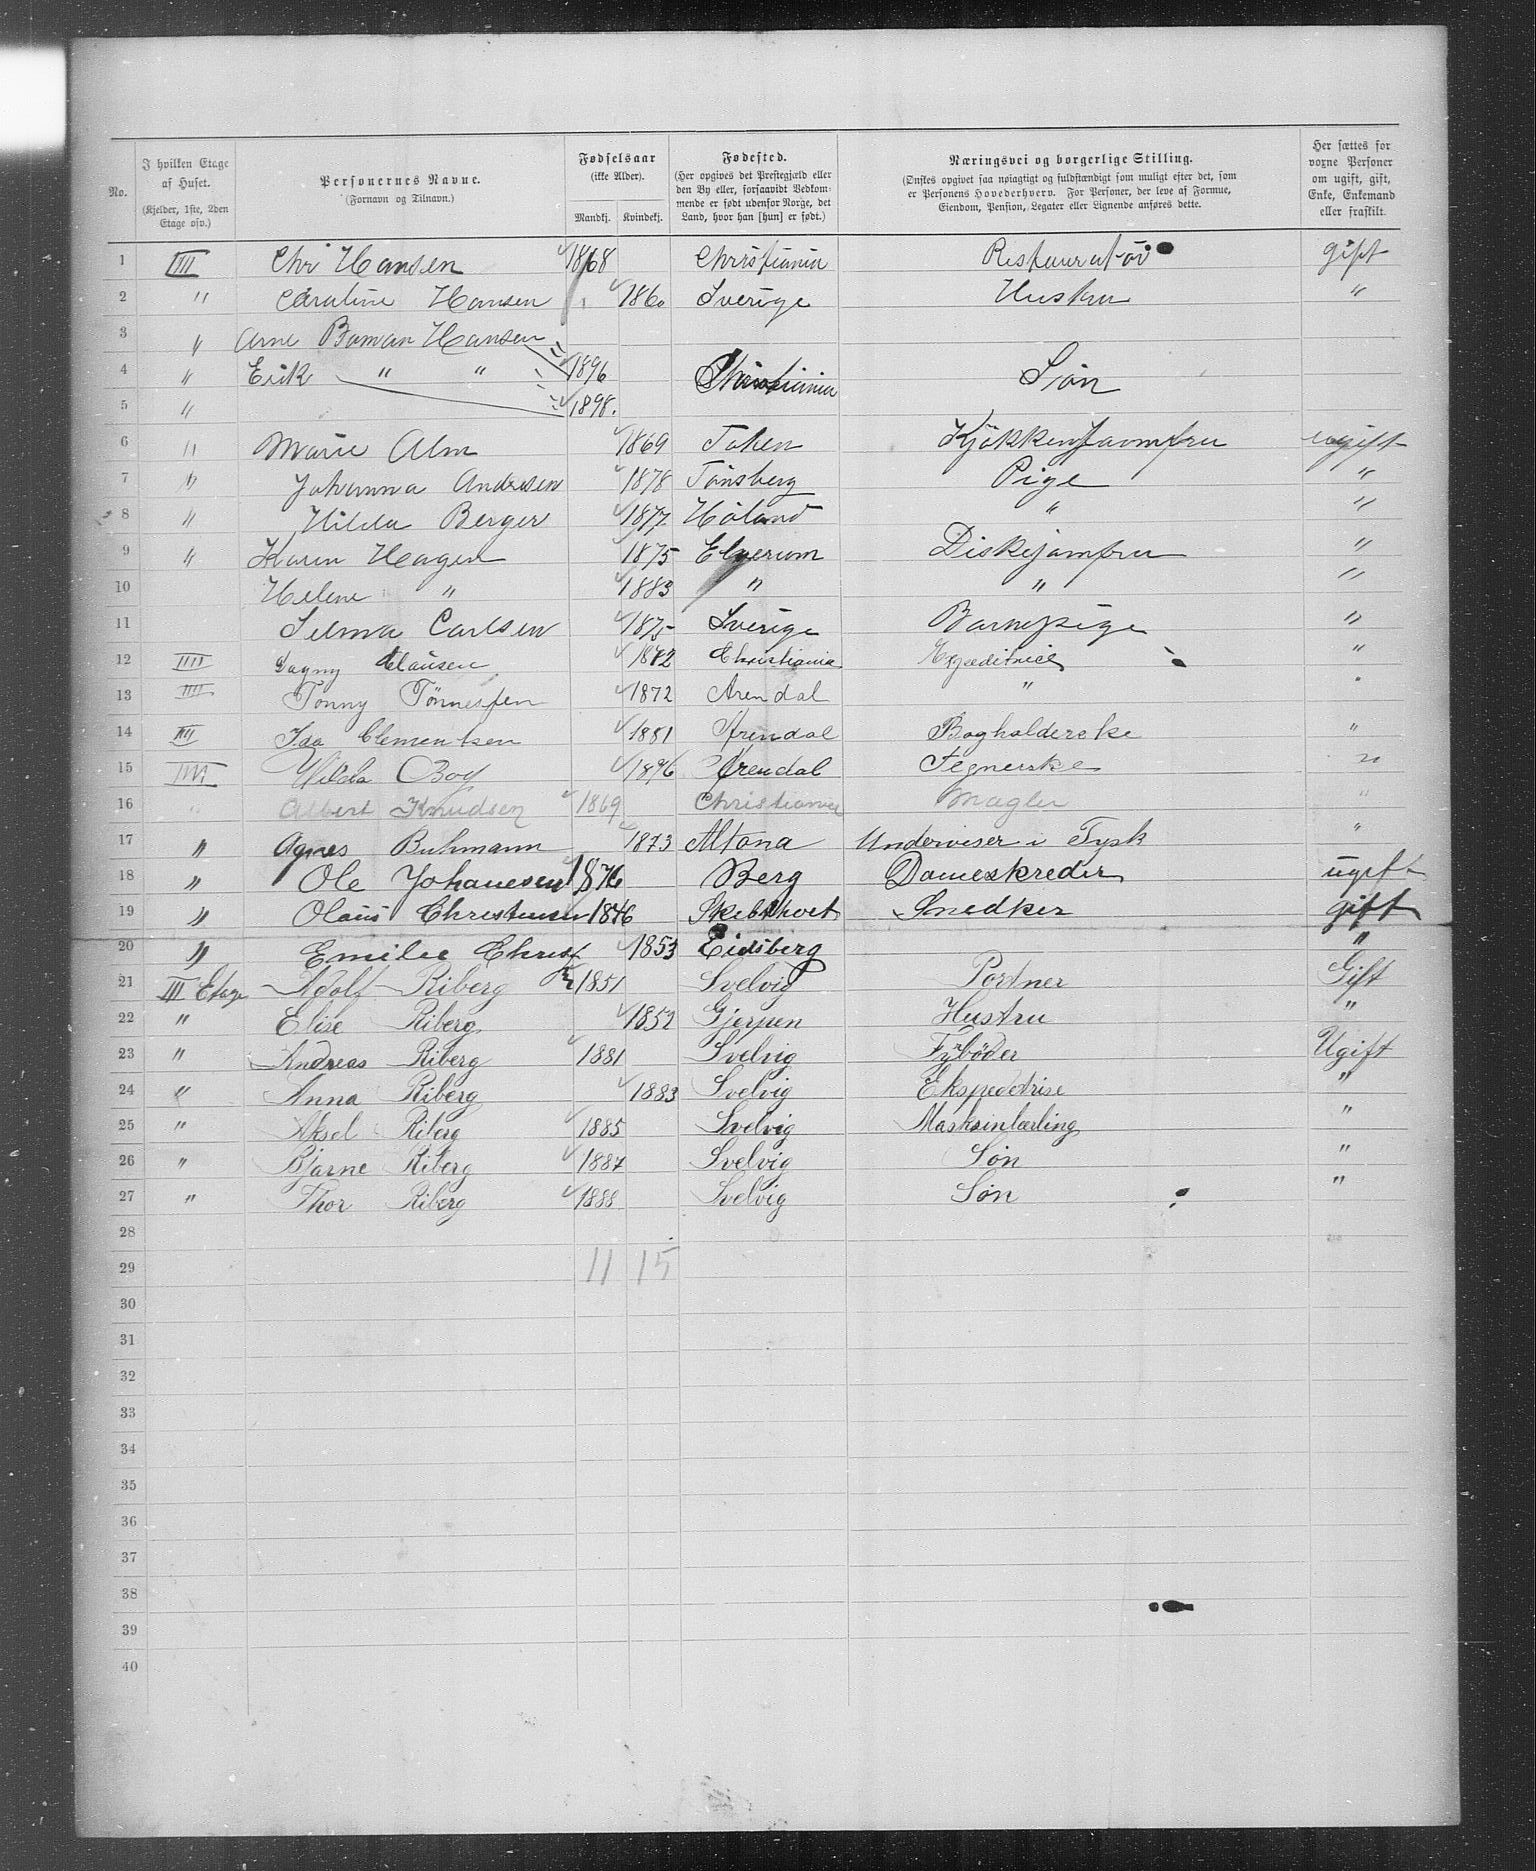 No.
I hvilken Etage af Huset. (Kjelder, 1ste, 2den Etage osv.)
Personernes Navne. (Fornavn og Tilnavn.)
Fødselsaar (ikke Alder). Mandkj. Kvindekj.
Fødested. (Her opgives det Prestegjæld eller den By eller, forsaavidt Vedkommende er født udenfor Norge, det Land, hvor han [hun] er født.)
Næringsvei og borgerlige Stilling. (Ønskes opgivet saa nøiagtigt og fuldstændigt som muligt efter det, som er Personens Hovederhverv. For Personer, der leve af Formue, Eiendom, Pension, Legater eller Lignende anføres dette.)
Her sættes for voxne Personer om ugift, gift, Enke, Enkemand eller fraskilt.
1 IIII Chr Hansen 1868 Christiania Restauratør gift
2 " Caroline Hansen 1860 Sverige Hustru "
3 " Arne Boman Hansen
4 " Erik " " 1896 Christiania Søn
5 " 1898.
6 " Marie Alm 1869 Søkkenjaumfru ugift
7 " Johanna Andresen 1878 Tønsberg Pige "
8 " Hilda Berger 1877 Høland " "
9 " Karen Hagen 1875 Elverum Diskejomfru "
10 Helene " 1883 " " "
11 Selma Carlsen 1875 Sverige Barnepige "
12 IIII Dagny Clausen 1872 Christiania Expeditrice "
13 IIII Tonny Tønnessen 1872 Arendal " "
14 III Ida Clementsen 1881 Arendal Bogholderske "
15 IIII Hilda Boy 1876 Arendal Tegnerske "
16 " Albert Knudsen 1869 Christiania Mægler "
17 " Agnes Buhmann 1873 Altona Underviser i Tysk "
18 " Ole Johanesen 1876 Berg Dameskreder ugift
19 " Olaus Christensen 1846 Skebthvet Snedker gift
20 " Emilie Christ 1853 Eidsberg "
21 III Etage Adolf Riberg 1851 Svelvig Portner Gift
22 " Elise Riberg 1852 Gjerpen Hustru "
23 " Andreas Riberg 1881 Svelvig Fyrbøder Ugift
24 " Anna Riberg 1883 Svelvig Ekspeditrise "
25 " Aksel Riberg 1885 Svelvig Masksinlærling "
26 " Bjarne Riberg 1887 Svelvig Søn "
27 " Thor Riberg 1888 Svelvig Søn "
28
29 11 15
30
31
32
33
34
35
36
37
38
39
40